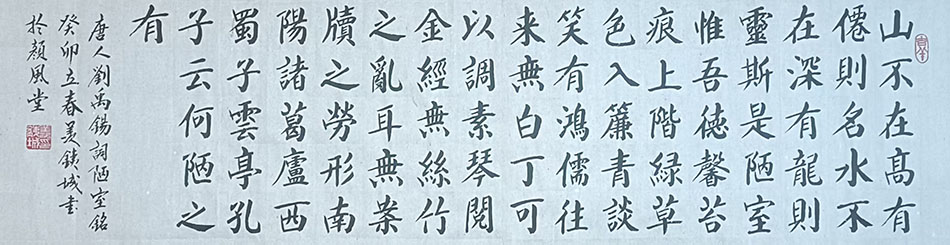 山不在高有
僊則名水不
在深有龍則
靈斯是陋室
惟吾徳馨苔
痕上階綠草
色入簾青談
笑有鴻儒往
来無白丁可
以調素琴閱
金經無絲竹
之亂耳無案
牘之勞形南
陽諸葛廬西
蜀子雲亭孔
子云何陋之
有
唐人劉禹錫詞陋室銘
癸卯立春姜城書
於顏風堂